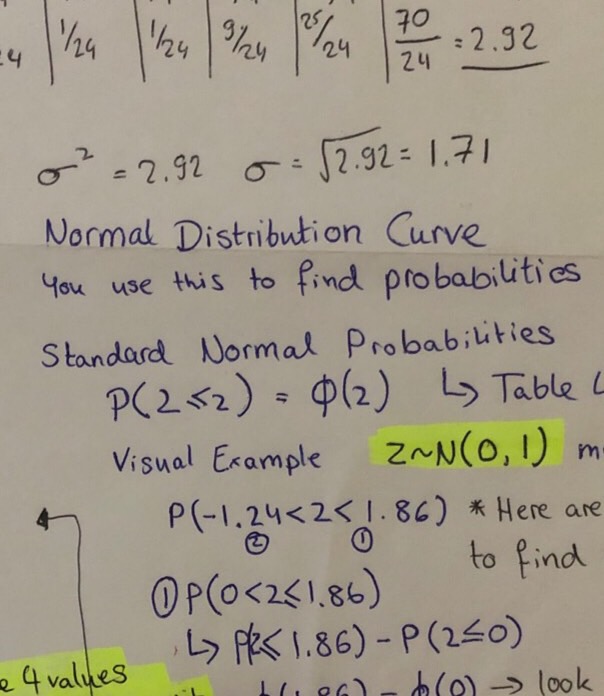 24 | 1/24 | 1/24 | 9/24 | 25/24 | 70/24 = 2.92
σ² = 2.92 σ = √2.92 = 1.71
Normal Distribution Curve
You use this to find probabilities
Standard Normal Probabilities
P(Z≤z) = Φ(z) ↳ Table
Visual Example Z~N(0,1)
P(-1.24<Z<1.86) * Here are
② ① to find
① P(0<Z≤1.86)
↳ P(Z≤1.86) - P(Z≤0)
4 values
(1.86) - Φ(0) → look